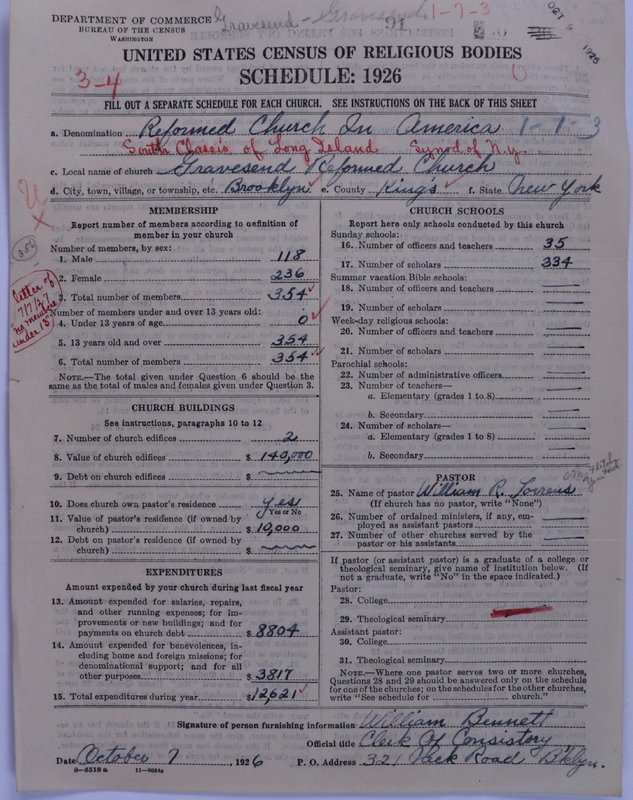 DEPARTMENT OF COMMERCE
BUREAU OF THE CENSUS
WASHINGTON
Gravesend - Gravesend
1-7-3
OCT 9 1926
UNITED STATES CENSUS OF RELIGIOUS BODIES
3-4
SCHEDULE: 1926
FILL OUT A SEPARATE SCHEDULE FOR EACH CHURCH. SEE INSTRUCTIONS ON THE BACK OF THIS SHEET
a. Denomination Reformed Church In America 1-7-3
South Classis of Long Island Synod of N.Y.
c. Local name of church Gravesend Reformed Church
d. City, town, village, or township, etc. Brooklyn e. County Kings f. State New York
MEMBERSHIP
Report number of members according to definition of
member in your church
Number of members, by sex:
1. Male 118
2. Female 236
3. Total number of members 354
Number of members under and over 13 years old:
4. Under 13 years of age 0
5. 13 years old and over 354
6. Total number of members 354
NOTE.—The total given under Question 6 should be the
same as the total of males and females given under Question 3.
354
letter of
7/7/27
"no members
under 13"
CHURCH BUILDINGS
See instructions, paragraphs 10 to 12
7. Number of church edifices 2
8. Value of church edifices $ 140,000
9. Debt on church edifices $
10. Does church own pastor's residence yes
Yes or No
11. Value of pastor's residence (if owned by
church) $ 10,000
12. Debt on pastor's residence (if owned by
church) $
EXPENDITURES
Amount expended by your church during last fiscal year
13. Amount expended for salaries, repairs,
and other running expenses; for im-
provements or new buildings; and for
payments on church debt $ 8804
14. Amount expended for benevolences, in-
cluding home and foreign missions; for
denominational support; and for all
other purposes $ 3817
15. Total expenditures during year $ 12,621
CHURCH SCHOOLS
Report here only schools conducted by this church
Sunday schools:
16. Number of officers and teachers 35
17. Number of scholars 334
Summer vacation Bible schools:
18. Number of officers and teachers
19. Number of scholars
Week-day religious schools:
20. Number of officers and teachers
21. Number of scholars
Parochial schools:
22. Number of administrative officers
23. Number of teachers—
a. Elementary (grades 1 to 8)
b. Secondary
24. Number of scholars—
a. Elementary (grades 1 to 8)
b. Secondary
PASTOR
25. Name of pastor William R. Torrens
(If church has no pastor, write "None")
26. Number of ordained ministers, if any, em-
ployed as assistant pastors
27. Number of other churches served by the
pastor or his assistants
If pastor (or assistant pastor) is a graduate of a college or
theological seminary, give name of institution below. (If
not a graduate, write "No" in the space indicated.)
Pastor:
28. College
29. Theological seminary
Assistant pastor:
30. College
31. Theological seminary
NOTE.—Where one pastor serves two or more churches,
Questions 28 and 29 should be answered only on the schedule
for one of the churches; on the schedules for the other churches,
write "See schedule for church."
Signature of person furnishing information William Bennett
Official title Clerk Of Consistory
Date October 7, 1926 P. O. Address 321 Road Bklyn.
8-5519a 11-9064a